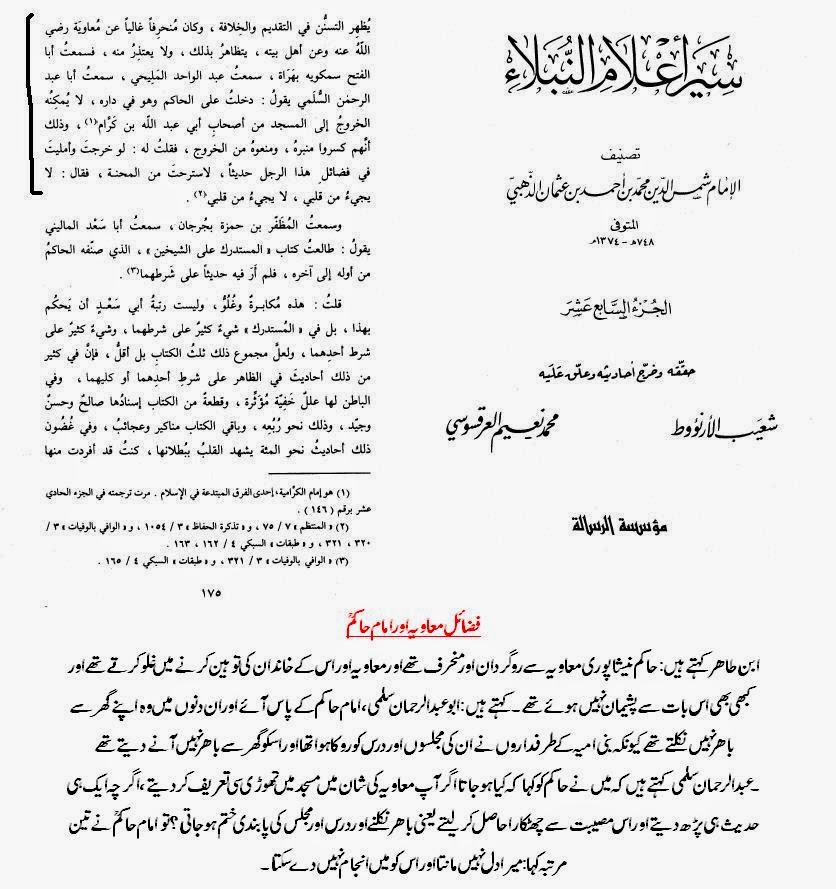 سير أعلام النبلاء
تصنيف
الإمام شمس الدين محمد بن أحمد بن عثمان الذهبي
المتوفى
٧٤٨هـ - ١٣٧٤م
الجزء السابع عشر
حققه وخرج أحاديثه وعلق عليه
شعيب الأرنؤوط محمد نعيم العرقسوسي
مؤسسة الرسالة
يُظهر التسنُّن في التقديم والخِلافة ، وكان مُنحرفاً غالياً عن مُعاويَة رضي
اللّهُ عنه وعن أهل بيته ، يتظاهرُ بذلك ، ولا يعتذِرُ منه ، فسمعتُ أبا
الفتح سمكويه بهَرَاة ، سمعتُ عبد الواحد المَلِيحي ، سمعتُ أبا عبد
الرحمٰن السُّلَمي يقولُ : دخلتُ على الحاكم وهو في داره ، لا يُمكِنُه
الخروجُ إلى المسجد من أصحابِ أبي عبد اللّه بن كَرَّام(١) ، وذلك
أنَّهم كسروا منبرَهُ ، ومنعوهُ من الخروج ، فقلتُ له : لو خرجتَ وأمليتَ
في فضائلِ هذا الرجل حديثاً ، لاسترحتَ من المحنة ، فقال : لا
يجيءُ من قلبي ، لا يجيءُ من قلبي(٢) .
وسمعتُ المُظَفّر بن حمزة بجُرجان ، سمعتُ أبا سَعْد الماليني
يقولُ : طالعتُ كتاب « المستدرك على الشيخين » ، الذي صنَّفه الحاكمُ
من أوله إلى آخره ، فلم أَرَ فيه حديثاً على شَرطهما(٣) .
قلتُ : هذه مُكابرةٌ وغُلُوٌّ ، وليست رتبةُ أبي سَعْدٍ أن يَحكُم
بهذا ، بل في « المُستدرك » شيءٌ كثيرٌ على شرطهما ، وشيءٌ كثيرٌ على
شرط أحدِهما ، ولعلَّ مجموع ذلك ثلثُ الكتابِ بل أقلُّ ، فإنَّ في كثير
من ذلك أحاديثَ في الظاهر على شرطِ أحدِهما أو كليهما ، وفي
الباطن لها عللٌ خَفِيّة مُؤَثِّرة ، وقطعةٌ من الكتاب إسنادُها صالحٌ وحسنٌ
وجيّد ، وذلك نحو رُبُعِه ، وباقي الكتاب مناكير وعجائبُ ، وفي غُضُون
ذلك أحاديثُ نحو المئة يشهد القلبُ ببُطلانها ، كنتُ قد أفردت منها
(١) هو إمام الكرّامية ، إحدى الفرق المبتدعة في الإسلام . مرت ترجمته في الجزء الحادي
عشر برقم (١٤٦) .
(٢) « المنتظم » ٧ / ٧٥ ، و « تذكرة الحفاظ » ٣ / ١٠٥٤ ، و « الوافي بالوفيات » ٣ /
٣٢٠ ، ٣٢١ ، و « طبقات » السبكي ٤ / ١٦٢ ، ١٦٣ .
(٣) « الوافي بالوفيات » ٣ / ٣٢١ ، و « طبقات » السبكي ٤ / ١٦٥ .
١٧٥
فضائل معاویہ اور امام حاکمؒ
ابن طاھر کہتے ہیں: حاکم نیشاپوری معاویہ سے روگردان اور منحرف تھے اور معاویہ اور اس کے خاندان کی توہین کرنے میں غلو کرتے تھے اور
کبھی بھی اس بات سے پشیمان نہیں ہوئے تھے ۔ کہتے ہیں: ابو عبدالرحمان سلمی ، امام حاکم کے پاس آئے اور ان دنوں میں وہ اپنے گھر سے
باھر نہیں نکلتے تھے کیونکہ بنی امیہ کے طرفداروں نے ان کی مجلسوں اور درس کو روکا ہوا تھا اور اسکو گھر سے باھر نہیں آنے دیتے تھے
۔عبدالرحمان سلمی کہتے ہیں کہ میں نے حاکم کو کہا کہ کیا ہو جاتا اگر آپ معاویہ کی شان میں مسجد میں تھوڑی سی تعریف کر دیتے ، اگر چہ ایک ہی
حدیث ہی پڑھ دیتے اور اس مصیبت سے چھٹکارا حاصل کر لیتے یعنی باھر نکلنے اور درس اور مجلس کی پابندی ختم ہو جاتی ؟ تو امام حاکمؒ نے تین
مرتبہ کہا: میرا دل نہیں مانتا اور اس کو میں انجام نہیں دے سکتا۔